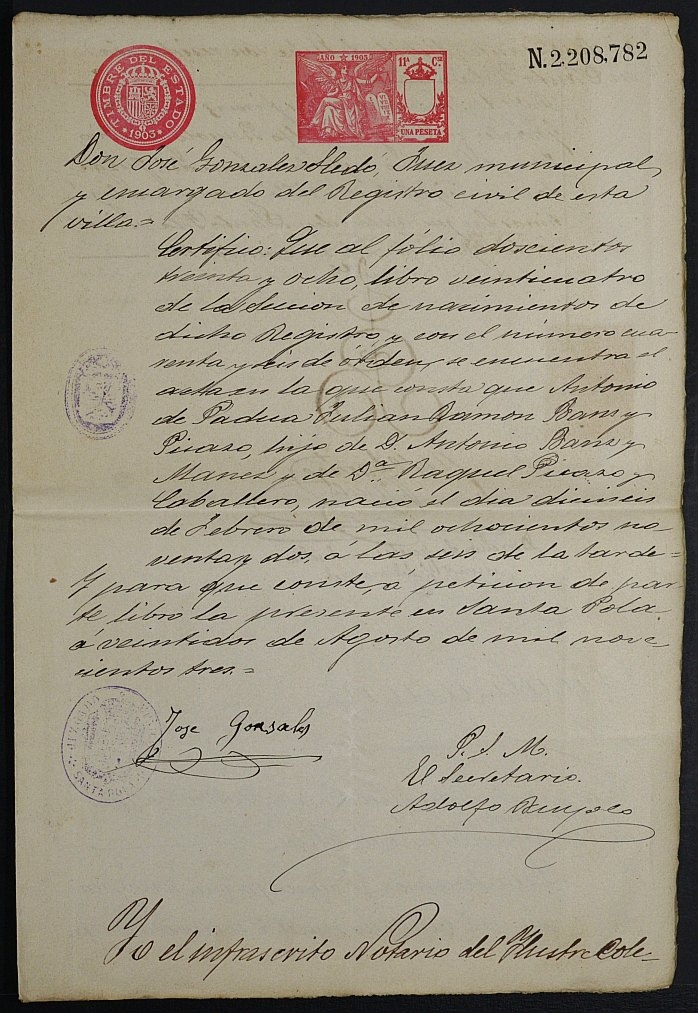 TIMBRE DEL ESTADO
* 1903 *
AÑO * 1903
11ª Cse
UNA PESETA
N.2.208,782
Don José Gonzalez Sledó, Juez municipal
y encargado del Registro civil de esta
villa.=
Certifico: Que al fólio doscientos
treinta y ocho, libro veinticuatro
de la Seccion de nacimientos de
dicho Registro, y con el número cua-
renta y seis de orden, se encuentra el
acta en la que consta que Antonio
de Padua Julian Ramon Bans y
Picazo, hijo de D. Antonio Bans y
Manez y de Dª Raquel Picazo y
Caballero, nació el dia dieciseis
de Febrero de mil ochocientos no
venta y dos, á las seis de la tarde=
Y para que conste, á peticion de par-
te libro la presente en Santa Pola
á veintidos de Agosto de mil nove-
cientos tres.=
Jose Gonzalez
P. S. M.
El Secretario.
Adolfo
SANTA POLA
Yo el infrascrito Notario del Ilustre Cole-